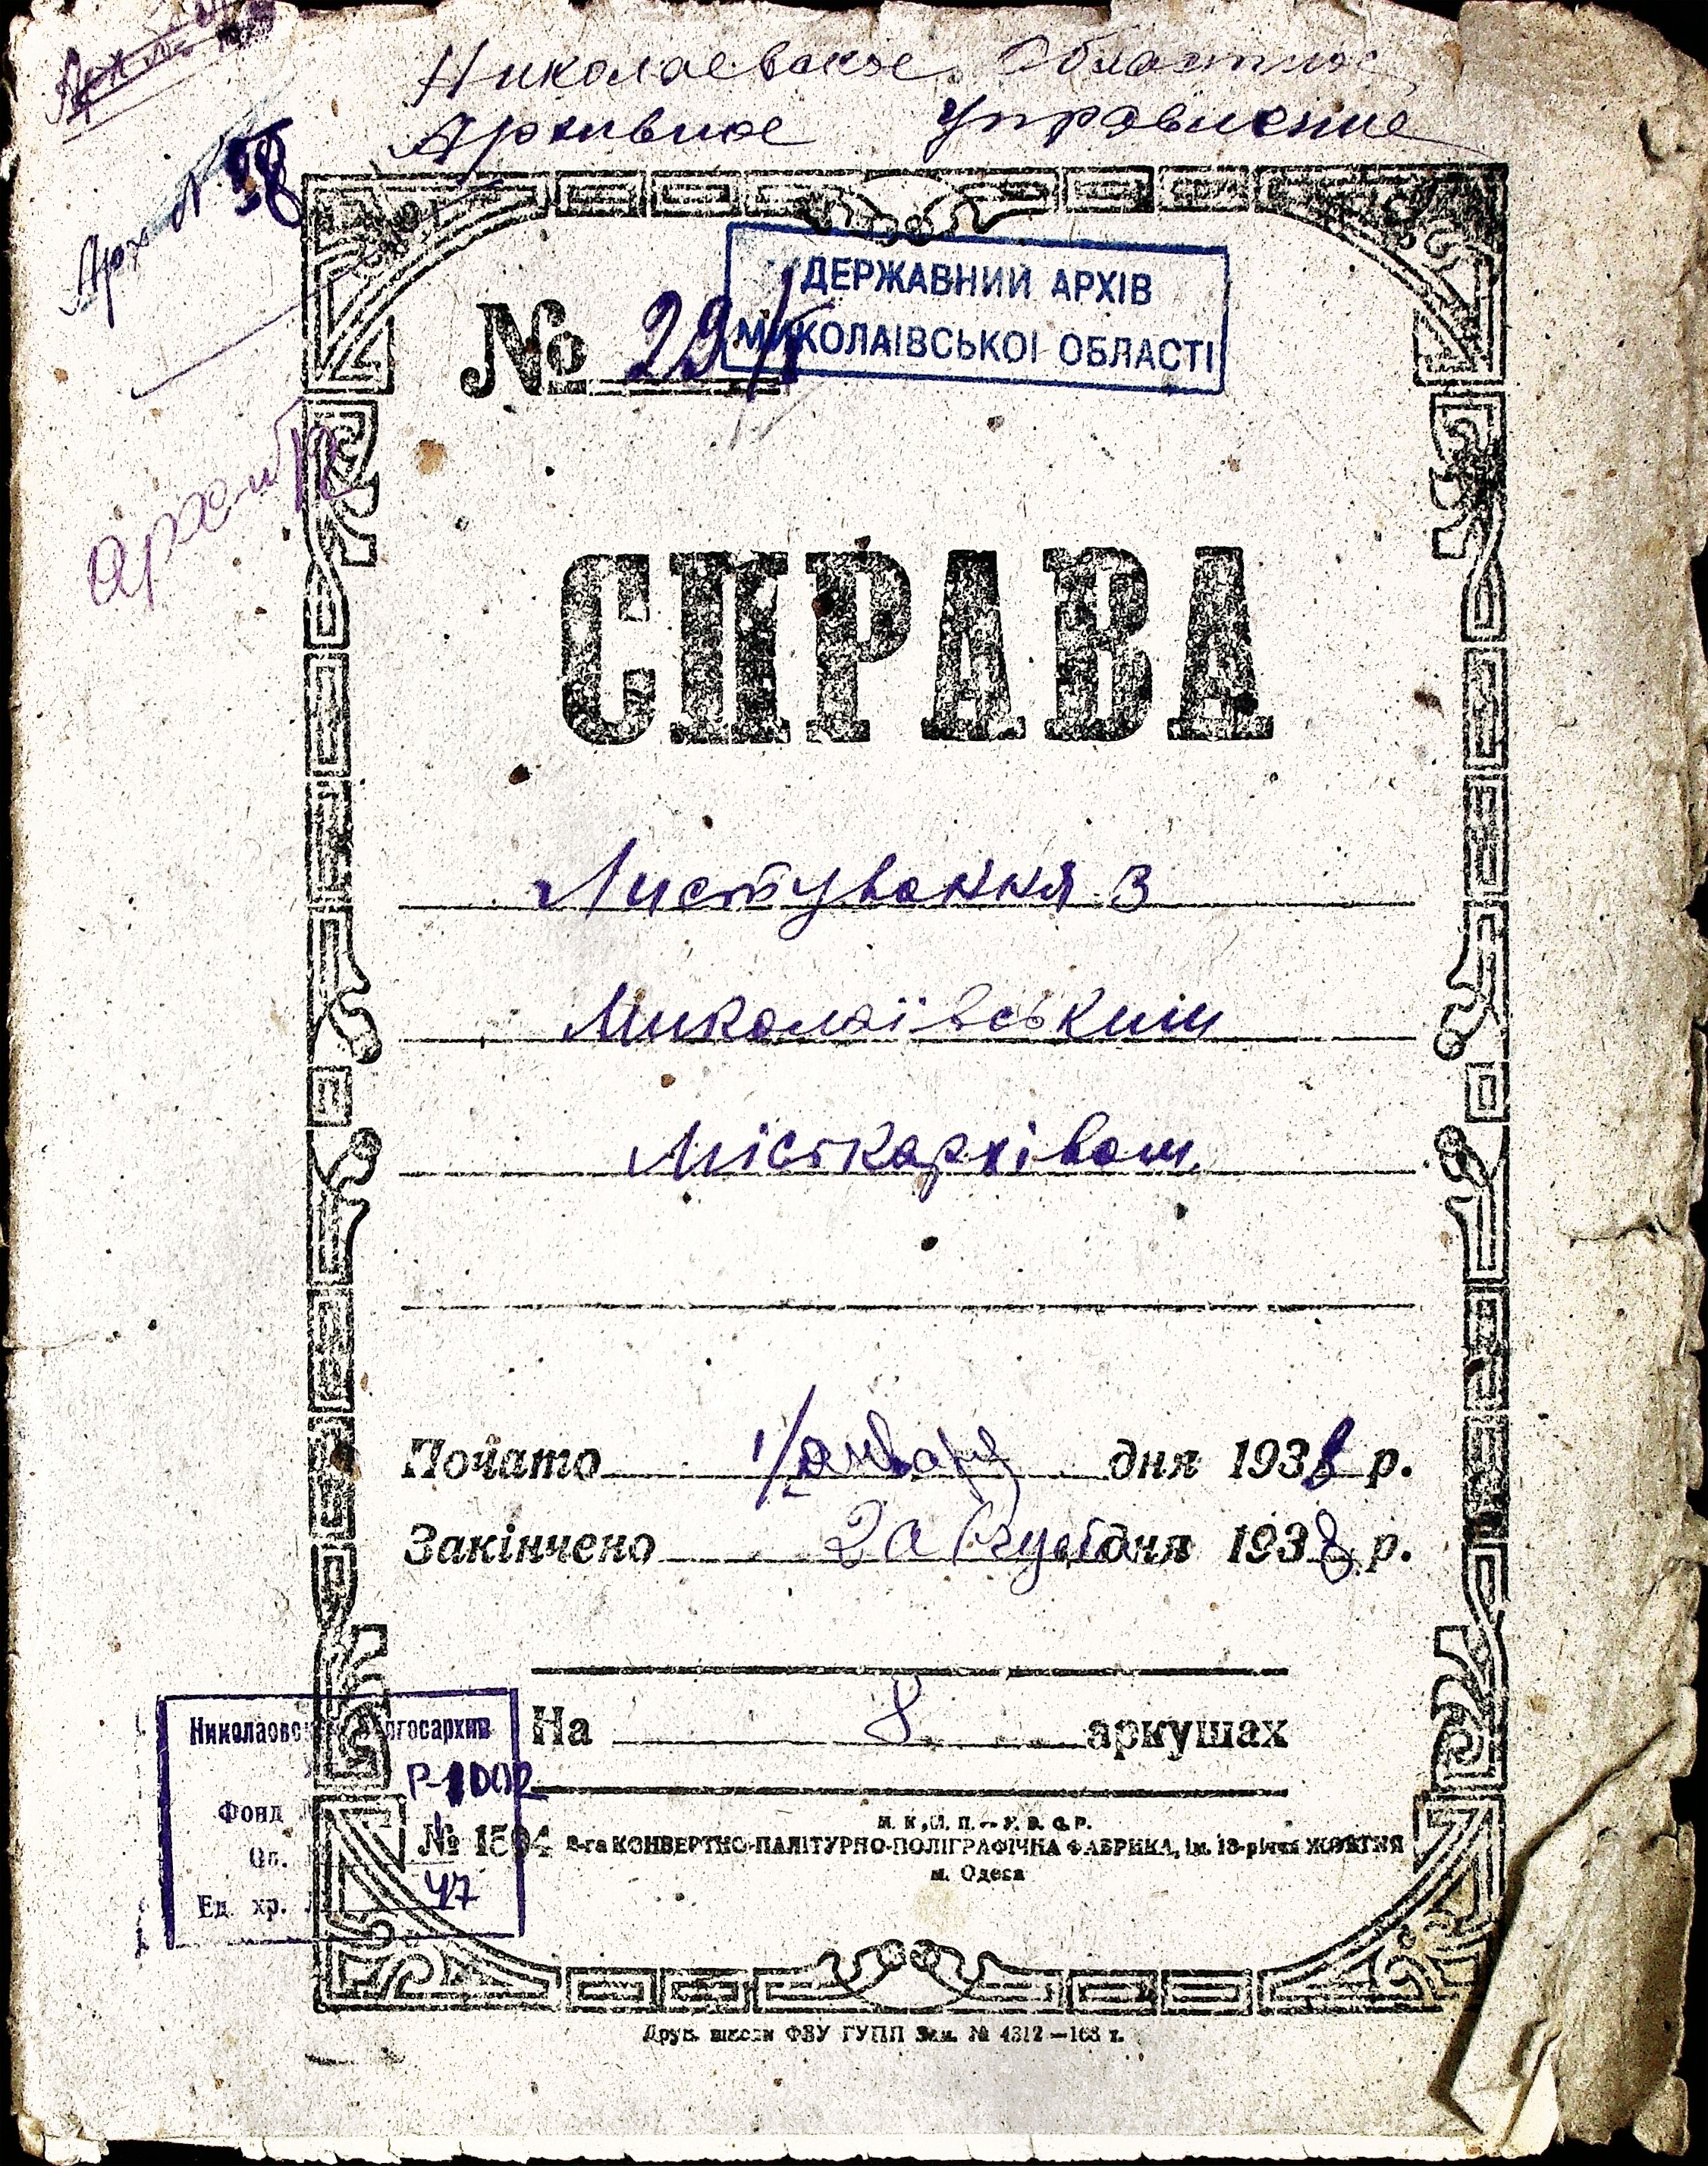 Николаевское Областное
Архивное Управление
Арх № 58
ДЕРЖАВНИЙ АРХІВ
МИКОЛАЇВСЬКОЇ ОБЛАСТІ
№ 29
СПРАВА
Листування з
Миколаївським
Міськархівом
Почато 1/января дня 1938 р.
Закінчено дня 1938 р.
На 8 аркушах
Фонд
Р-1002
Оп. 1
Ед. хр. 47
№ 1594 2-га КОНВЕРТНО-ПАЛІТУРНО-ПОЛІГРАФІЧНА ФАБРИКА, ім. 13-річчя ЖОВТНЯ
м. Одеса
Друк. школи ФЗУ ГУПП Зам. № 4312—168 т.